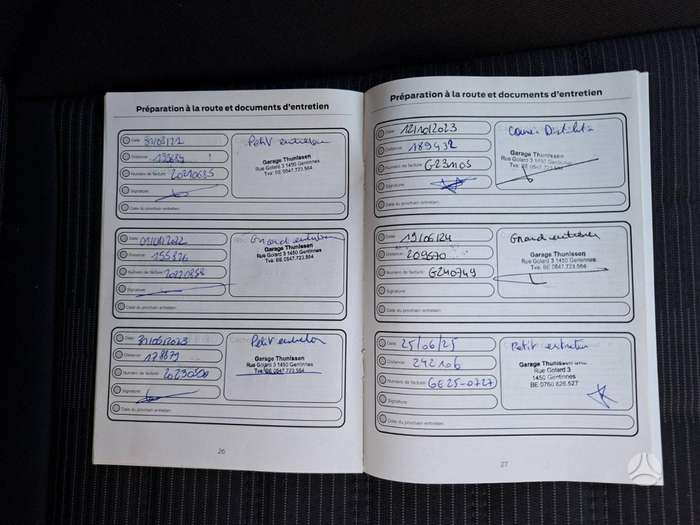 Préparation à la route et documents d'entretien
Date
Distance
Numéro de facture 20210685
Signature
Date du prochain entretien
Petit entretien
Garage Thunissen
Rue Golard 3 1450 Gentinnes
Tva: BE 0847.723.564
Date
Distance 155826
Numéro de facture
Signature
Date du prochain entretien
Grand entretien
Garage Thunissen
Rue Golard 3 1450 Gentinnes
Tva: BE 0847.723.564
Date 31/05/2023
Distance 178879
Numéro de facture
Signature
Date du prochain entretien
Petit entretien
Garage Thunissen
Rue Golard 3 1450 Gentinnes
Tva: BE 0847.723.564
26
Préparation à la route et documents d'entretien
Date 12/10/2023
Distance 189432
Numéro de facture G231105
Signature
Date du prochain entretien
Garage Thunissen
Rue Golard 3 1450 Gentinnes
Tva: BE 0847.723.564
Date 19/06/24
Distance 209570
Numéro de facture G240749
Signature
Date du prochain entretien
Grand entretien
Garage Thunissen
Rue Golard 3 1450 Gentinnes
Tva: BE 0847.723.564
Date 25/06/25
Distance 242106
Numéro de facture GE25-0727
Signature
Date du prochain entretien
Petit entretien
Garage Thunissen
Rue Golard 3
1450 Gentinnes
BE 0760.826.527
27